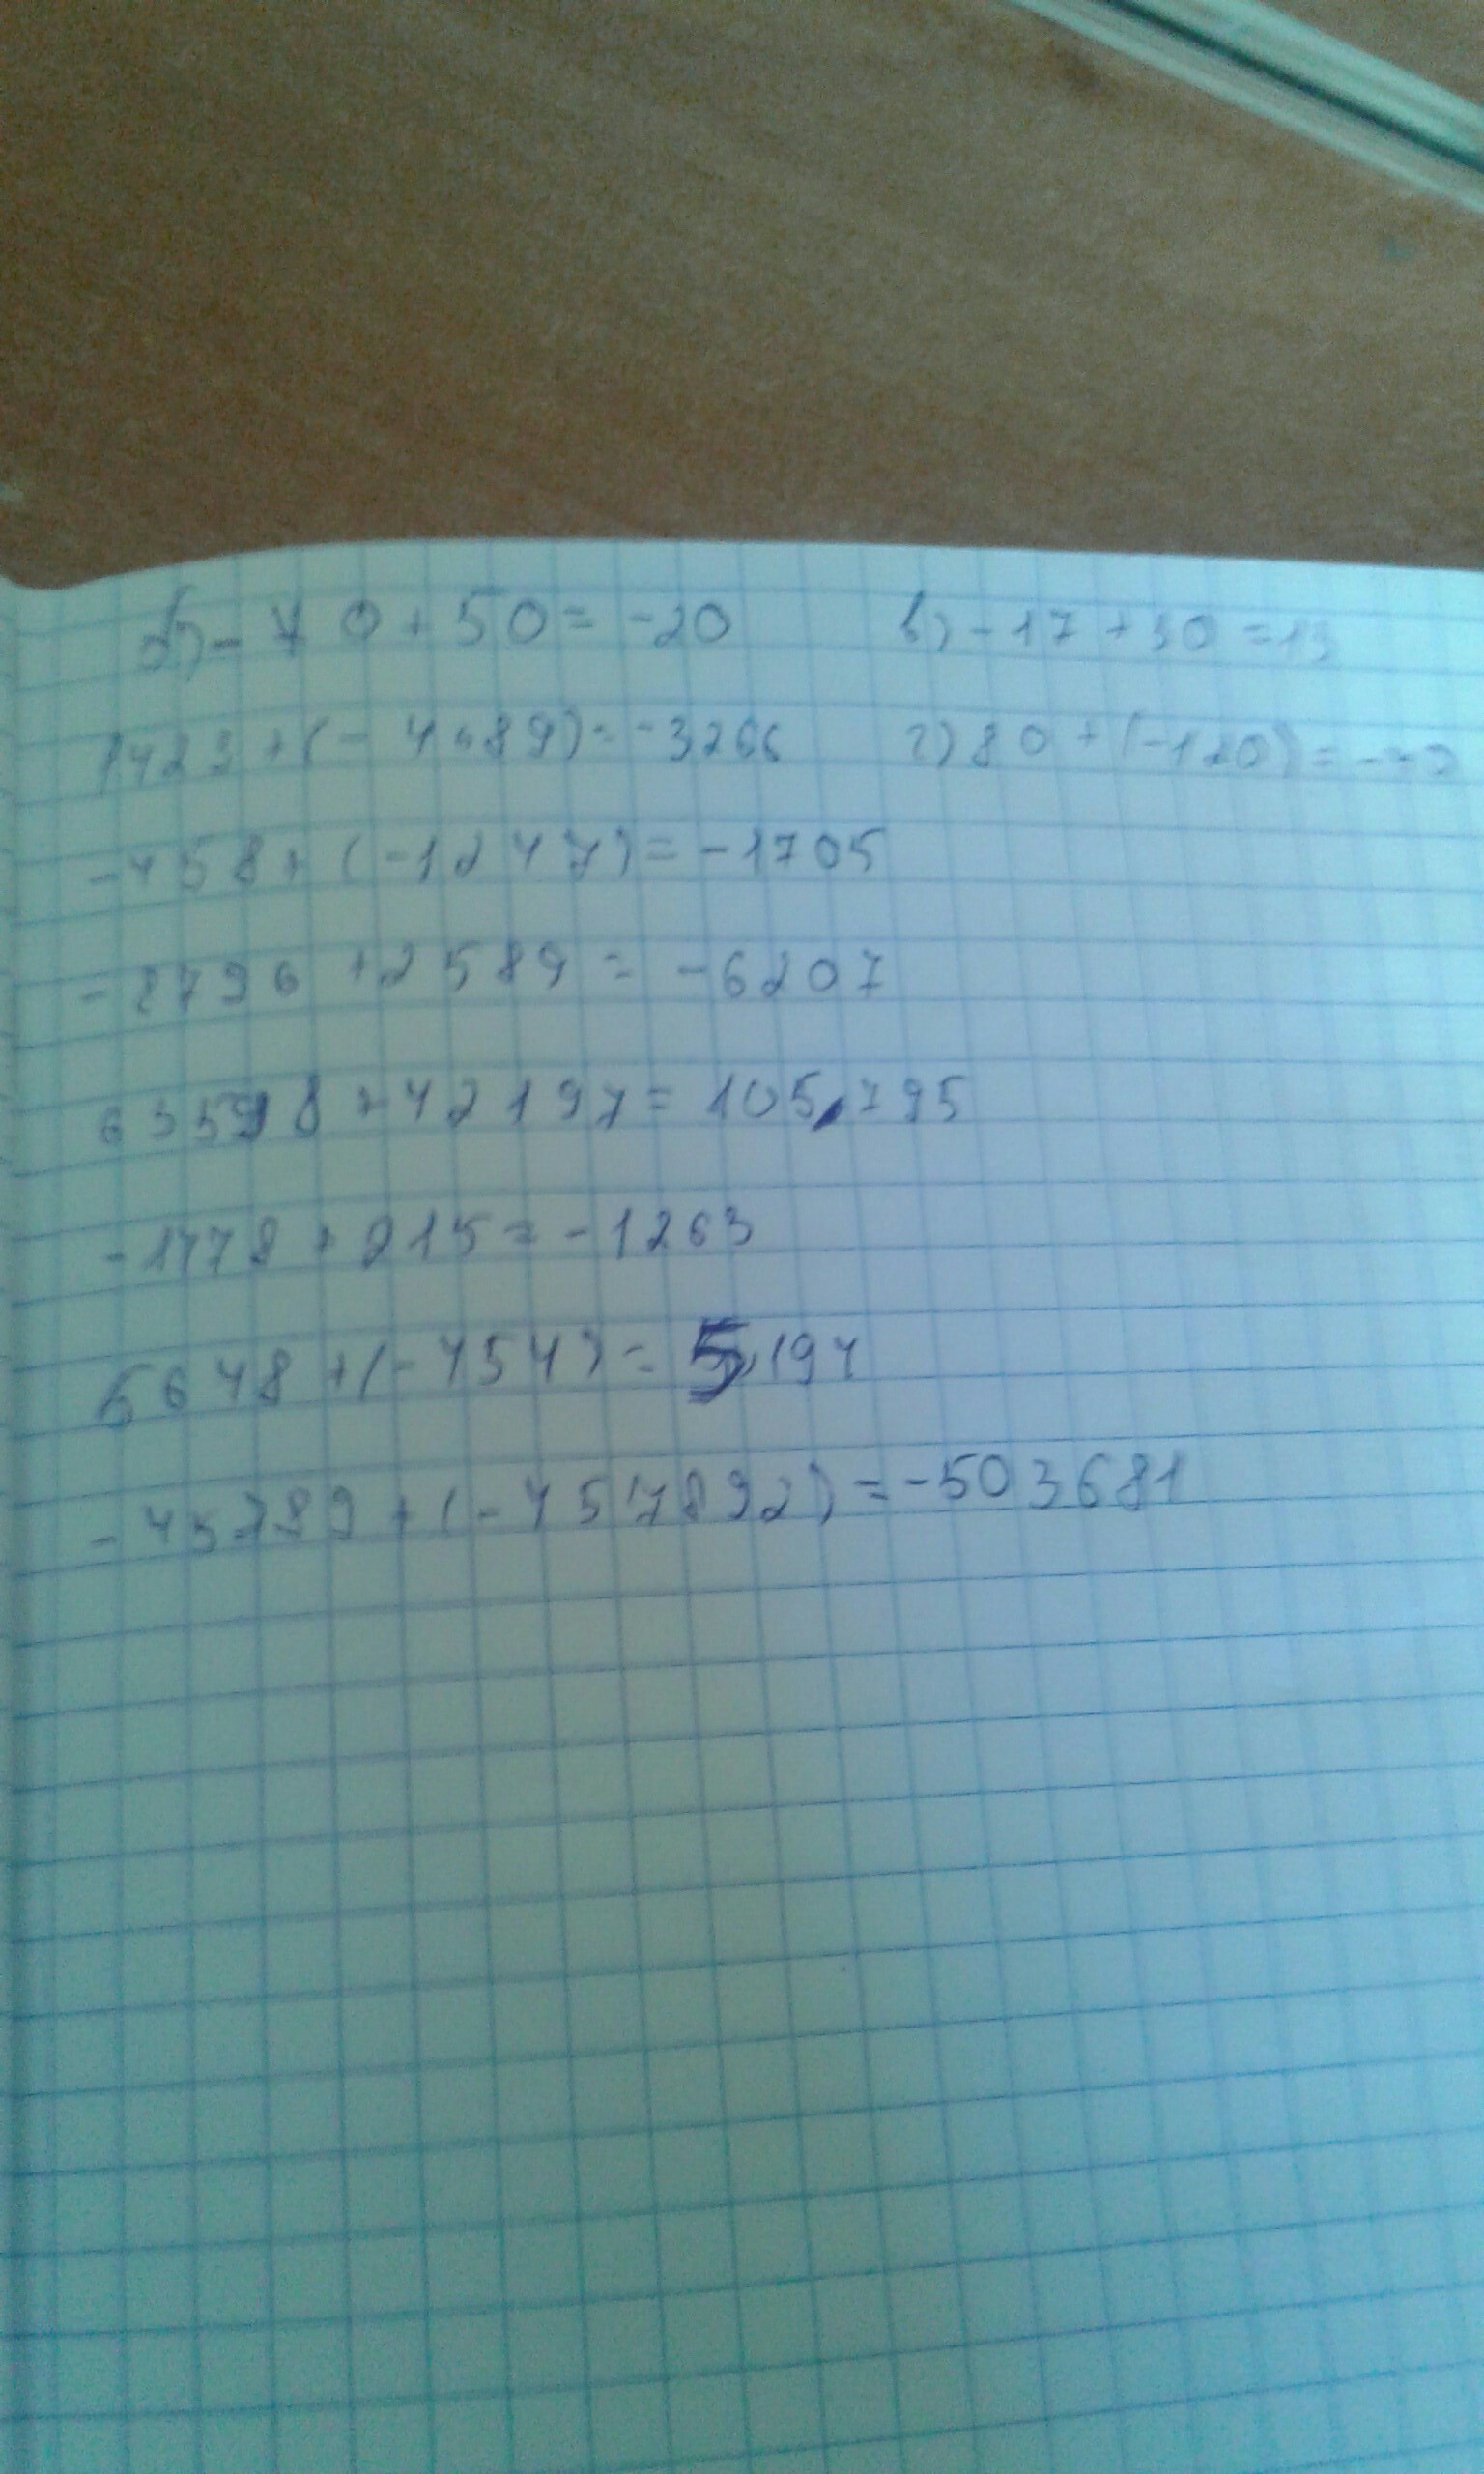 б) -70+50=-20 в) -17+30=13
1423+(-4689)=-3266 г) 80+(-120)=-40
-458+(-1247)=-1705
-8796+2589=-6207
63598+42197=105,795
-1478+215=-1263
5648+(-454)=5,194
-45789+(-457892)=-503681